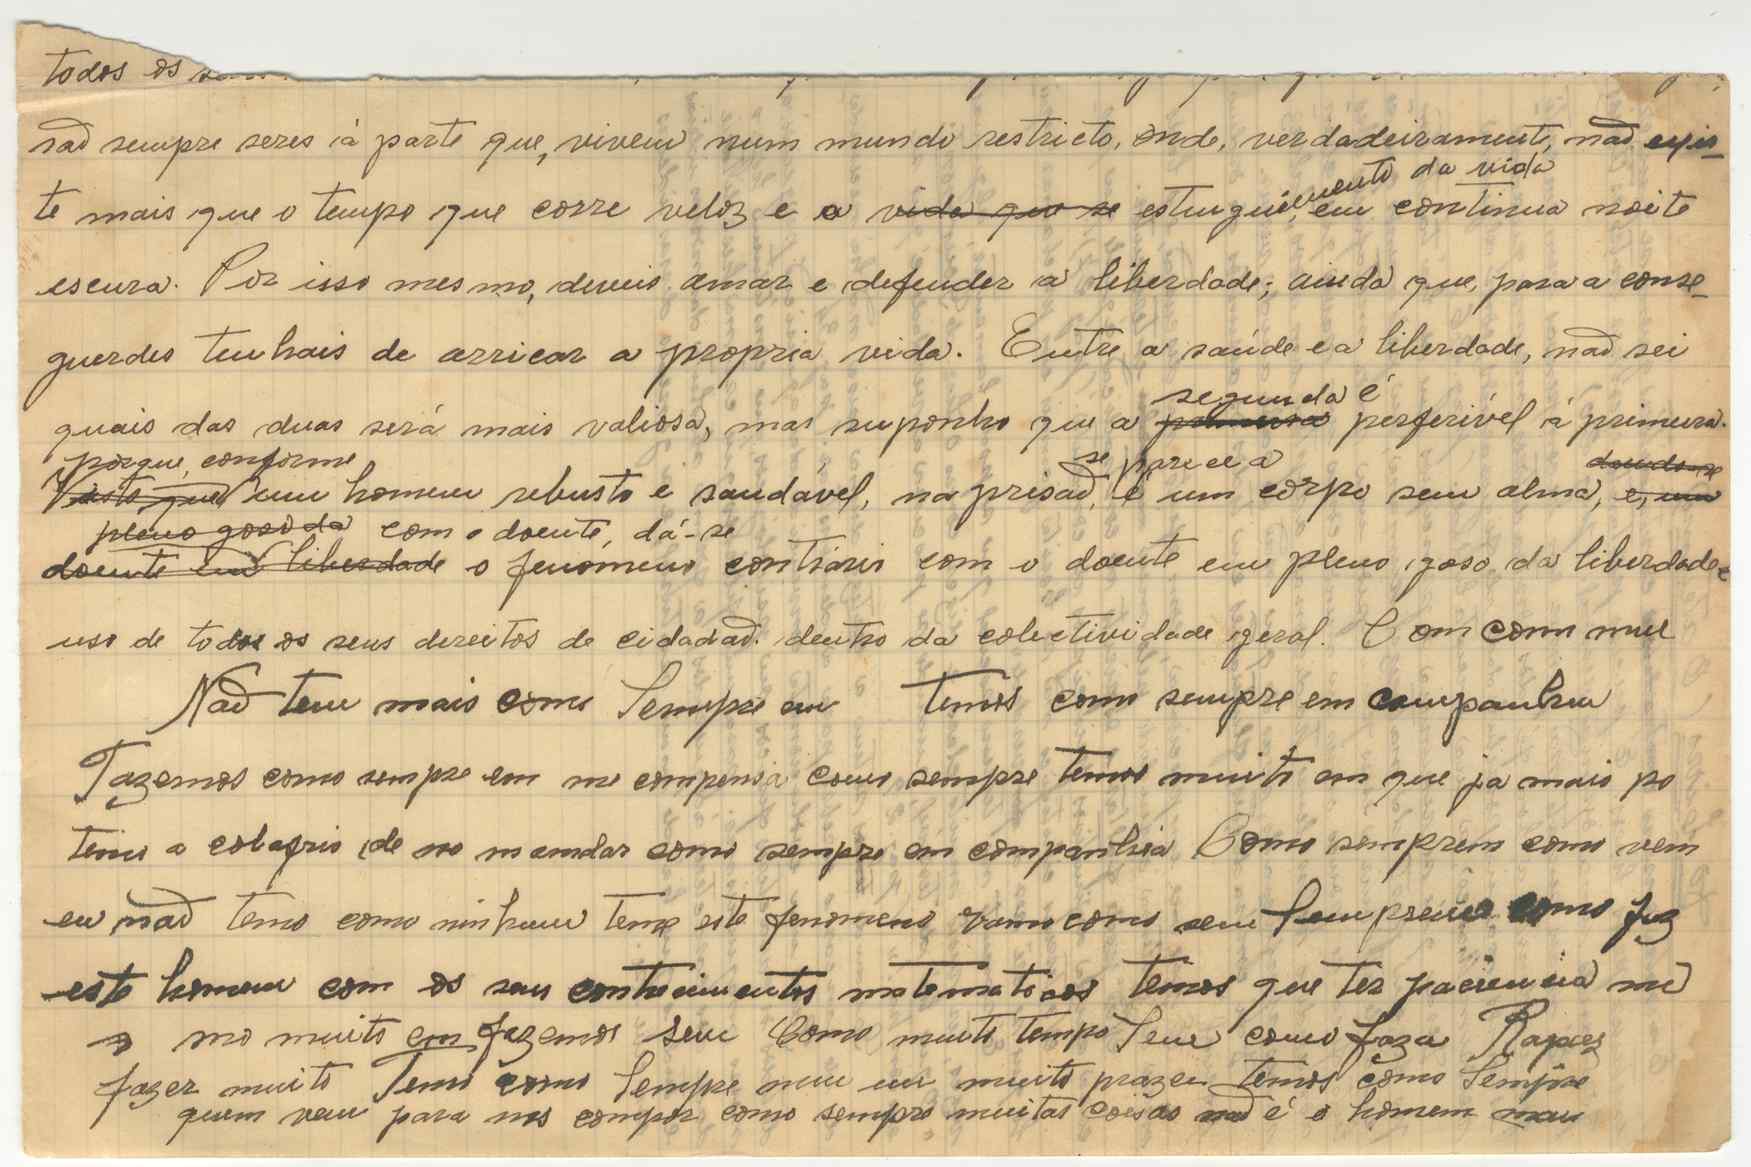 todos os
saõ sempre seres á parte que, vivem num mundo restricto, onde, verdadeiramente, naõ exis-
te mais que o tempo que corre veloz e o vida que se extinguē em continua noite
imento da vida
escura. Por isso mesmo, deveis amar e defender a liberdade; ainda que, para a conse-
guerdes tenhais de arriçar a propria vida. Entre a saúde e a liberdade, naõ sei
segunda é
quais das duas será mais valiosa, mas suponho que a primeira perferivel á primeira.
porque, conforme se parece a doudo-se
Visto que um homem rebusto e saudável, na prisaõ, é um corpo sem alma, e, um
pleno goso da com o doente, dá-se
doente em liberdade o fenómeno contrário com o doente em pleno goso da liberdade e
uso de todos os seus dereitos de cidadaõ. dentro da colectividade geral. Com com
Naõ tem mais como Sempre em temos como sempre em
Fazemos como sempre em me compensa como sempre temos muito em que ja mais po
temo a de no mandar como sempre em companhia Como semprem como vem
eu naõ temo como ninhum temp este fenomeno vamo como sem como faz
este homem com os seus matematicos temos que ter paciencia
mo muito em fazemos sem Como muito tempo Sem como faza Rapaz
fazer muito Temo como Sempre num em muito prazer temos como Sempre
quem vem para nos compor como sempre muitas coisas naõ é o homem mau